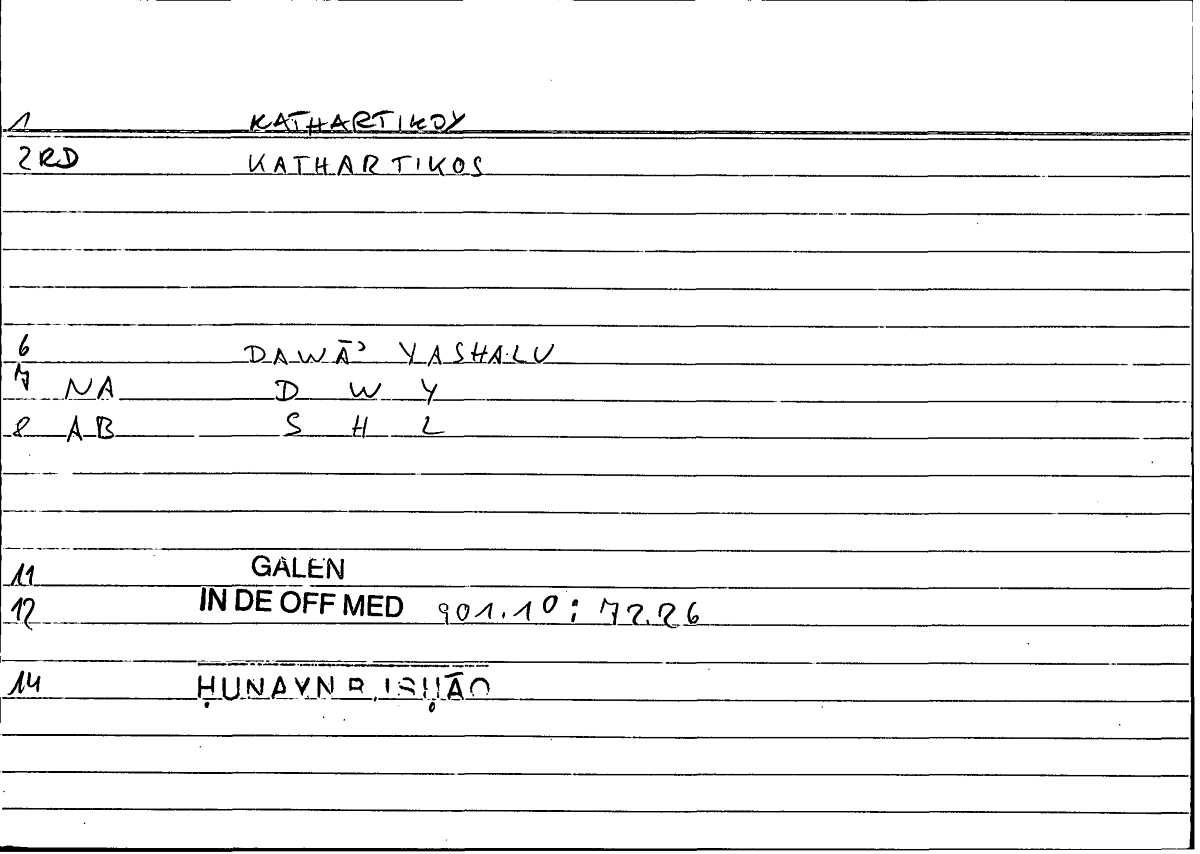 1 KATHARTIKOY
2RD KATHARTIKOS
6 DAWĀʾ YASHALU
7 NA D W Y
8 AB S H L
11 GALEN
12 IN DE OFF MED 901.10: 72.26
14 ḤUNAYN B. ISḤĀQ